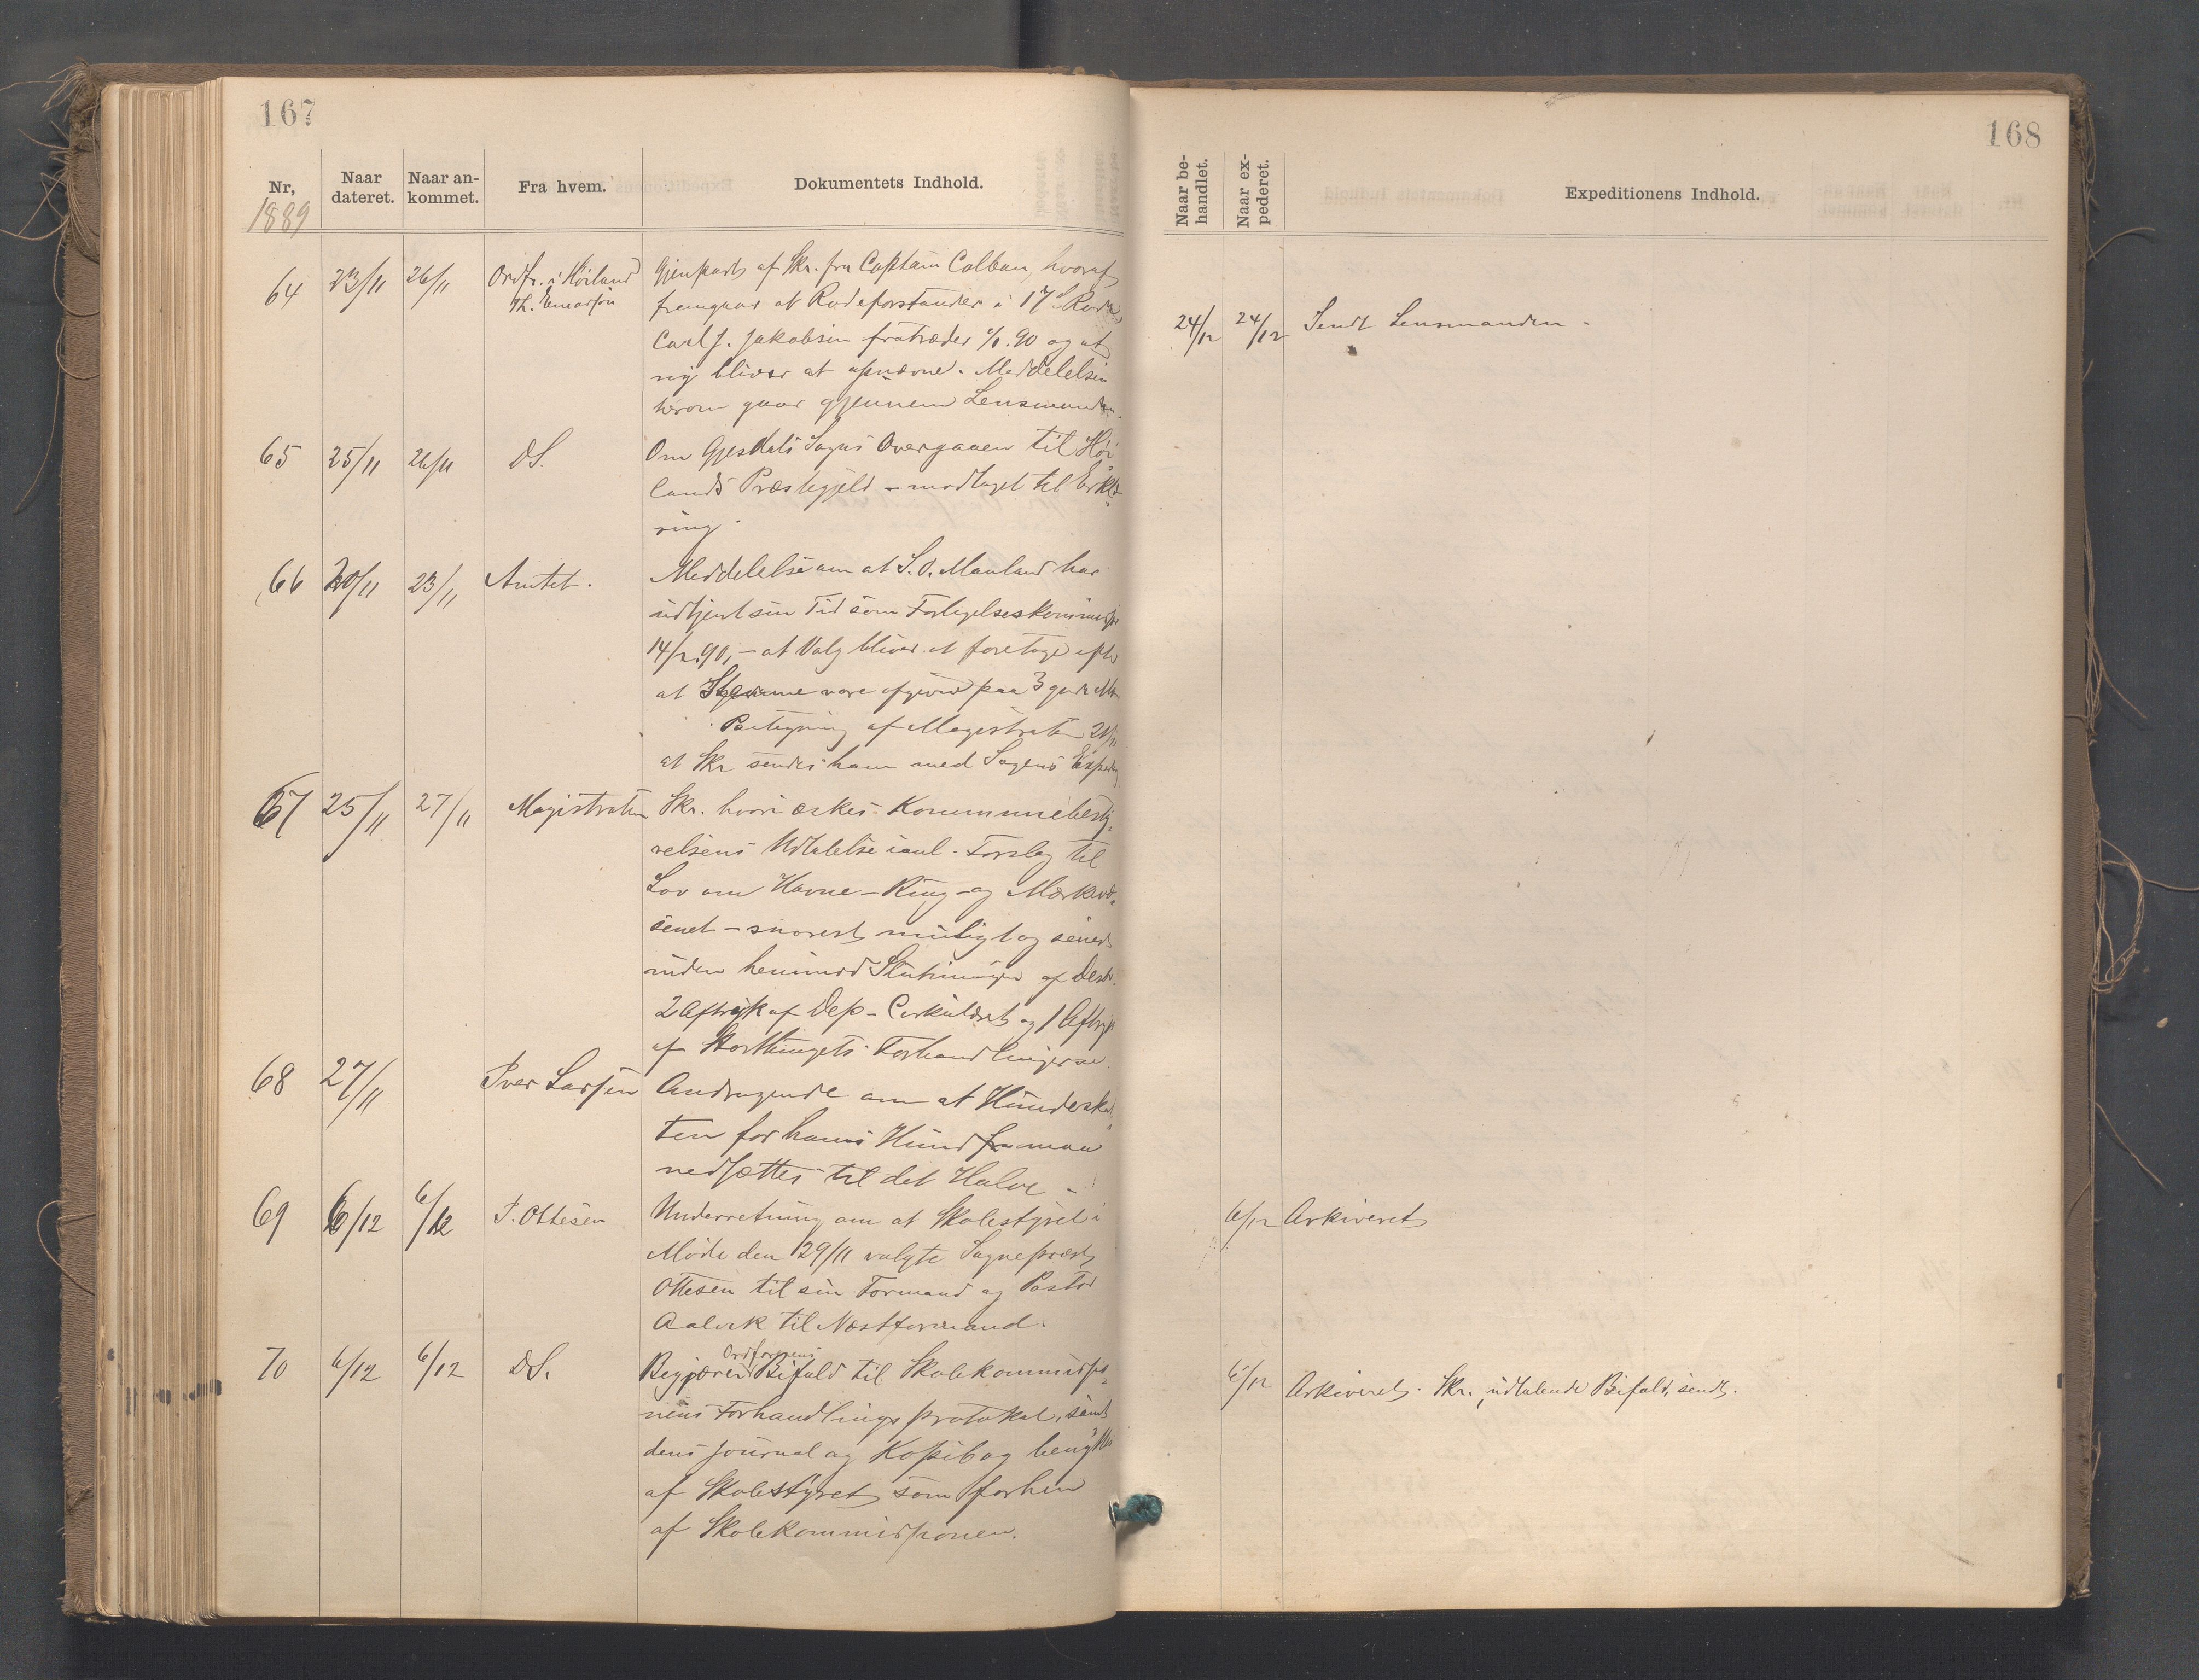 167
Nr,
1889
Naar dateret.
Naar an-kommet.
Fra hvem.
Dokumentets Indhold.
64 23/11 26/11 Ordfr. i Høiland
Gjenpart af Skr. fra Captain Colban, hvoraf
fremgaar at Rodeforstander i 17d Rode
Carl J. Jakobsen fratræder 1/1.90 og at
ny bliver at opnævne. Meddelelsen
herom gaar gjennem Lensmanden.
65 25/11 26/11 DS.
Om Gjesdals Sogns Overgaaen til Høi
lands Præstegjeld – modtaget til Erklæ-
ring.
66 20/11 23/11 Amtet.
Meddelelse om at S. O. Mauland har
udtjent sin Tid som Forligelseskommissær
14/2.90, – at Valg bliver at foretage efter
at Stemme være afgivne paa 3 gode Mæn
Paategning af Magistraten 21/11
at Skr sendes ham med Sagens Exped.
67 25/11 27/11 Magistraten
Skr. hvori æskes Kommunebesty-
relsens Udtalelse i anl. Forslag til
Lov om Havne-Ring- og Mærkevæ-
senet – snarest muligt og senest
inden henimod Slutningen af Desbr.
2 Aftryk af Dep-Cirkulæret og 1 Aftryk
af Storthingets Forhandlingerne.
68 27/11 Iver Larsen
Andragende om at Hundeskat
ten for hans Hund maa
nedsættes til det Halve –
69 6/12 6/12 P. Ottesen
Underretning om at Skolestyret i
Møde den 29/11 valgte Sognepræst
Ottesen til sin Formand og Pastor
Aalvik til Næstformand.
70 6/12 6/12 DS.
Ordførerens
Begjærer Bifald til Skolekommissio-
nens Forhandlingsprotokol, samt
dens Journal og Kopibog benyttes
af Skolestyret som forhen
af Skolekommissionen.
168
Naar be-handlet.
Naar ex-pederet.
Expeditionens Indhold.
24/12 24/12 Sendt Lensmanden.
6/12 Arkiveret
6/12 Arkiveret. Skr., udtalende Bifald, sendt.